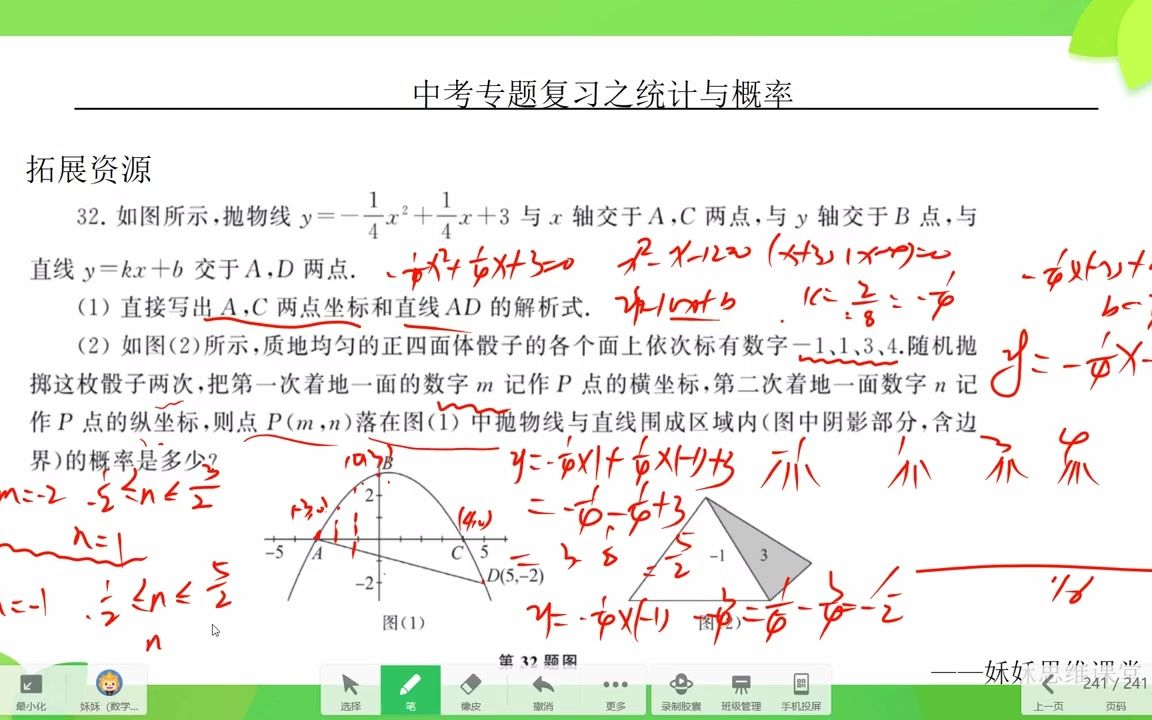 中考专题复习之统计与概率
拓展资源
32. 如图所示,抛物线 y=-1/4x²+1/4x+3 与 x 轴交于 A,C 两点,与 y 轴交于 B 点,与
直线 y=kx+b 交于 A,D 两点.
-1/4x²+1/4x+3=0
x²-x-12=0 (x+3)(x-4)=0
(1) 直接写出 A,C 两点坐标和直线 AD 的解析式.
(2) 如图(2)所示,质地均匀的正四面体骰子的各个面上依次标有数字-1、1、3、4.随机抛
掷这枚骰子两次,把第一次着地一面的数字 m 记作 P 点的横坐标,第二次着地一面数字 n 记
作 P 点的纵坐标,则点 P(m,n)落在图(1) 中抛物线与直线围成区域内(图中阴影部分,含边
界)的概率是多少?
m=-2
≤n≤3/2
n=1
-1/2≤n≤5/2
n
y=-1/4×1+1/4×(-1)+3
=-1/4-1/4+3
=5/2
y=-1/4×(-1)
B
2
(4,0)
-5
A
C
5
-2
D(5,-2)
图(1)
-1
3
第 32 题图
——姀姀思维课堂
最小化
选择
笔
橡皮
撤消
更多
录制胶囊
班级管理
手机投屏
上一页
241 / 241
页码